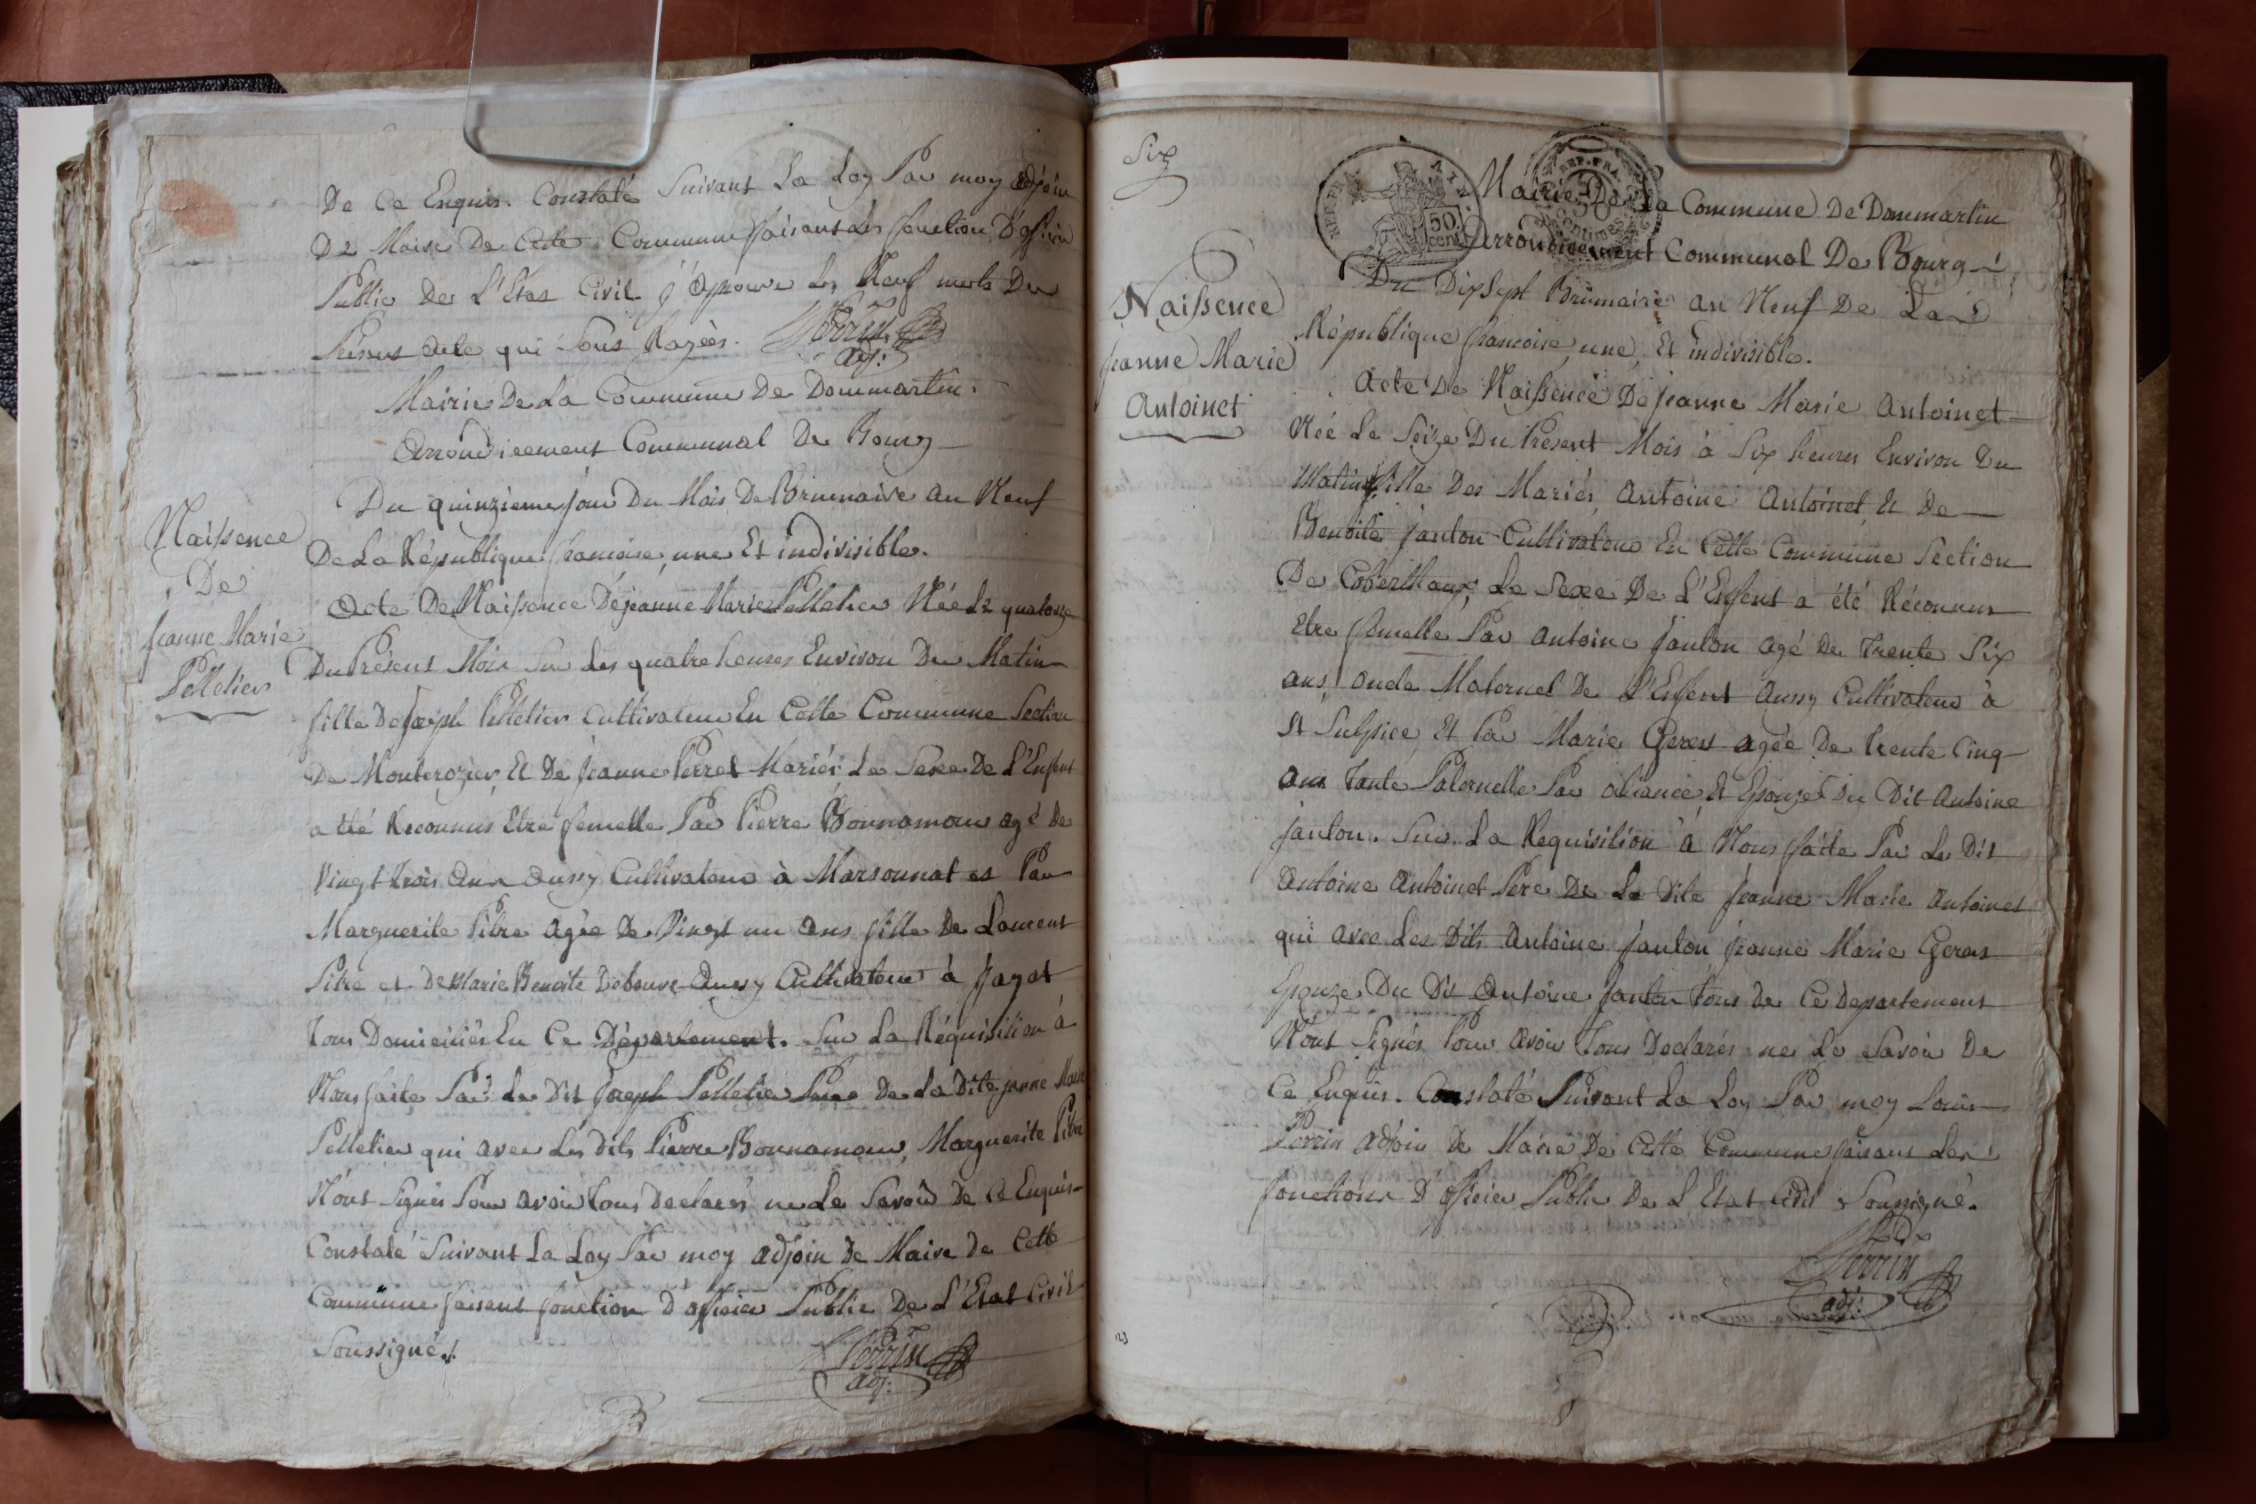 De Ce Enquis. Constaté Suivant La Loy Par moy adjoin
De Maire De Cete Commune faisant Les fonction D'officier
Public De L'Etat Civil. j'aprouve Les Neuf mots Du
Présent acte qui Sont Rayées. Perrin
adj:
Mairie De La Commune De Dommartin.
Arrondicement Communal De Bourg
Du quinzieme jour Du Mois De Brumaire an Neuf
De La République francoise, une Et indivisible.
Naissence
De
jeanne Marie
Pelletier
Acte De Naissence De jeanne Marie Pelletier Née Le quatorze
Du Présent Mois Sur Les quatre heures Environ Du Matin
fille De Joseph Pelletier Cultivateur En Cette Commune Section
De Monterozier, Et De jeanne Perret Mariés La Sexe De L'Enfent
a été Reconnus Etre femelle Par Pierre Bonnamour agé De
Vingt trois Ans Aussy Cultivateur à Marsonnat et Par
Marguerite Pitre agée De Vingt un ans fille De Laurent
Pitre et De Marie Benoite Aussy Cultivateur à Jayat
Tous Domiciliés En Ce Département. Sur La Réquisition à
Nous faite Par Le Dit Joseph Pelletier Pere De La Dite janne Marie
Pelletier qui avec Les Dits Pierre Bonnamour, Marguerite Pitre
N'ont Signés Pour avoir Tous Declarés ne Le Savoir De Ce Enquis
Constaté Suivant La Loy Par moy adjoin De Maire De Cette
Commune faisant fonction D officier Public De L'Etat Civil
Soussigné.
Perrin
adj:
Six
REP. FRA.
50
cent
REP. FRA.
Centimes
Mairie De La Commune De Dommartin
Arrondicement Communal De Bourg
Du Dixsept Brumaire an Neuf De La
République francoise, une, Et indivisible.
Naissence
jeanne Marie
Antoinet
Acte De Naissence De jeanne Marie Antoinet
Née Le Seize Du Présent Mois à Six heures Environ Du
Matin, fille Des Mariés, Antoine Antoinet, Et De
Benoite janton Cultivateur En Cette Commune Section
De Coberthoux; Le Sexe De L'Enfent a été Réconnus
Etre femelle Par Antoine janton agé De Trente Six
ans, oncle Maternel De L'Enfent Aussy Cultivateur à
St Sulpice, Et Par Marie Geras agée De trente Cinq
ans Tante Paternelle Par aliance Et Epouze Du Dit Antoine
janton. Sur La Requisition à Nous faite Par Le Dit
Antoine Antoinet Pere De La Dite jeanne Marie Antoinet
qui avec Les Dits Antoine janton jeanne Marie Geras
Epouze Du Dit Antoine janton Tous De Ce Departement
N'ont Signés Pour avoir Tous Declarés ne Le Savoir De
Ce Enquis. Constaté Suivant La Loy Par moy Louis
Perrin adjoin De Maire De Cette Commune faisant Les
fonctions D'officier Public De L'Etat Civil Soussigné.
Perrin
adj: